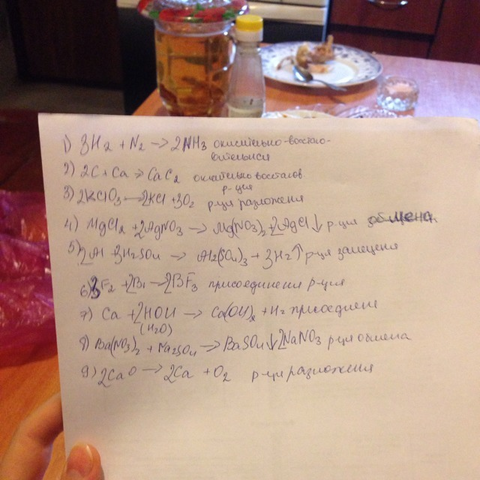 1) 3H2 + N2 → 2NH3 окислительно-восстано-
вительная
2) 2C + Ca → CaC2 окислительно восстанов
р-ция
3) 2KClO3 → 2KCl + 3O2 р-ция разложения
4) MgCl2 + 2AgNO3 → Mg(NO3)2 + 2AgCl ↓ р-ция обмена
5) 2Al 3H2SO4 → Al2(SO4)3 + 3H2 ↑ р-ция замещения
6) 3F2 + 2Bi → 2BiF3 присоединения р-ция
7) Ca + 2HOH → Ca(OH)2 + H2 присоединен
(H2O)
8) Ba(NO3)2 + Na2SO4 → BaSO4 ↓ 2NaNO3 р-ция обмена
9) 2CaO → 2Ca + O2 р-ция разложения